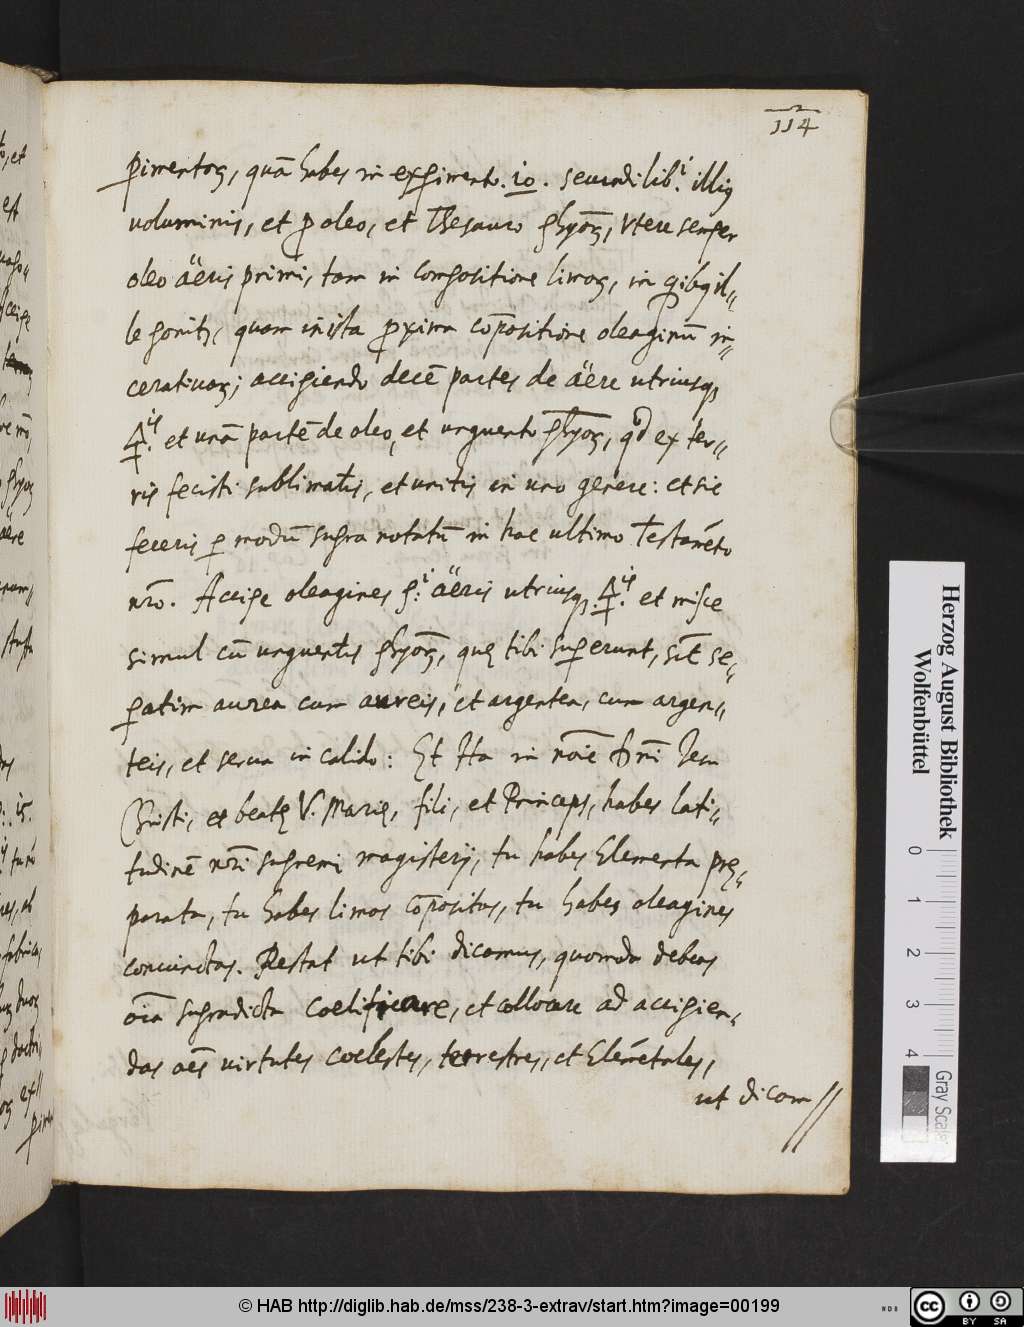 114
perimentoꝝ, quā habes in experimento .10. secundi libri illiꝰ
voluminis, et p̱ oleo, et Thesauro phyōꝝ, vtere semper
oleo aëris primi, tam in compositione limoꝝ, in
quam in ista proxima cōpositione oleaginū in„
cerativaꝝ; accipiendo decē partes de aëre utriusqꝫ
et unā partē de oleo, et unguento phyoꝝ, qd ex ter„
ris fecisti sublimatis, et unitis in uno genere: et sic
feceris p modū supra notatū in hac ultimo Testamēto
nr̄o. Accipe oleagines aëris utriusqꝫ et misce
simul cū unguentis phyōꝝ, quę tibi superunt, sit̄ se„
paratim aurea cum aureis, et argentea, cum argen„
teis, et serva in calido: Et Ita in noīe Dn̄i Jesu
Christi, et beatę V. Marię, fili, et Princeps, habes lati„
tudinē nr̄i supremi magisterij, tu habes Elementa prę„
parata, tu habes limos cōpositos, tu habes oleagines
coniunctas. Restat ut tibi dicamus, quomodo debeas
oīa supradicta coelificare, et collocare ad accipien„
das oēs virtutes coelestes, terrestres, et Elemētales,
ut dicam//
Herzog August Bibliothek
Wolfenbüttel
0 1 2 3 4
Gray Scale
© HAB http://diglib.hab.de/mss/238-3-extrav/start.htm?image=00199
cc BY SA